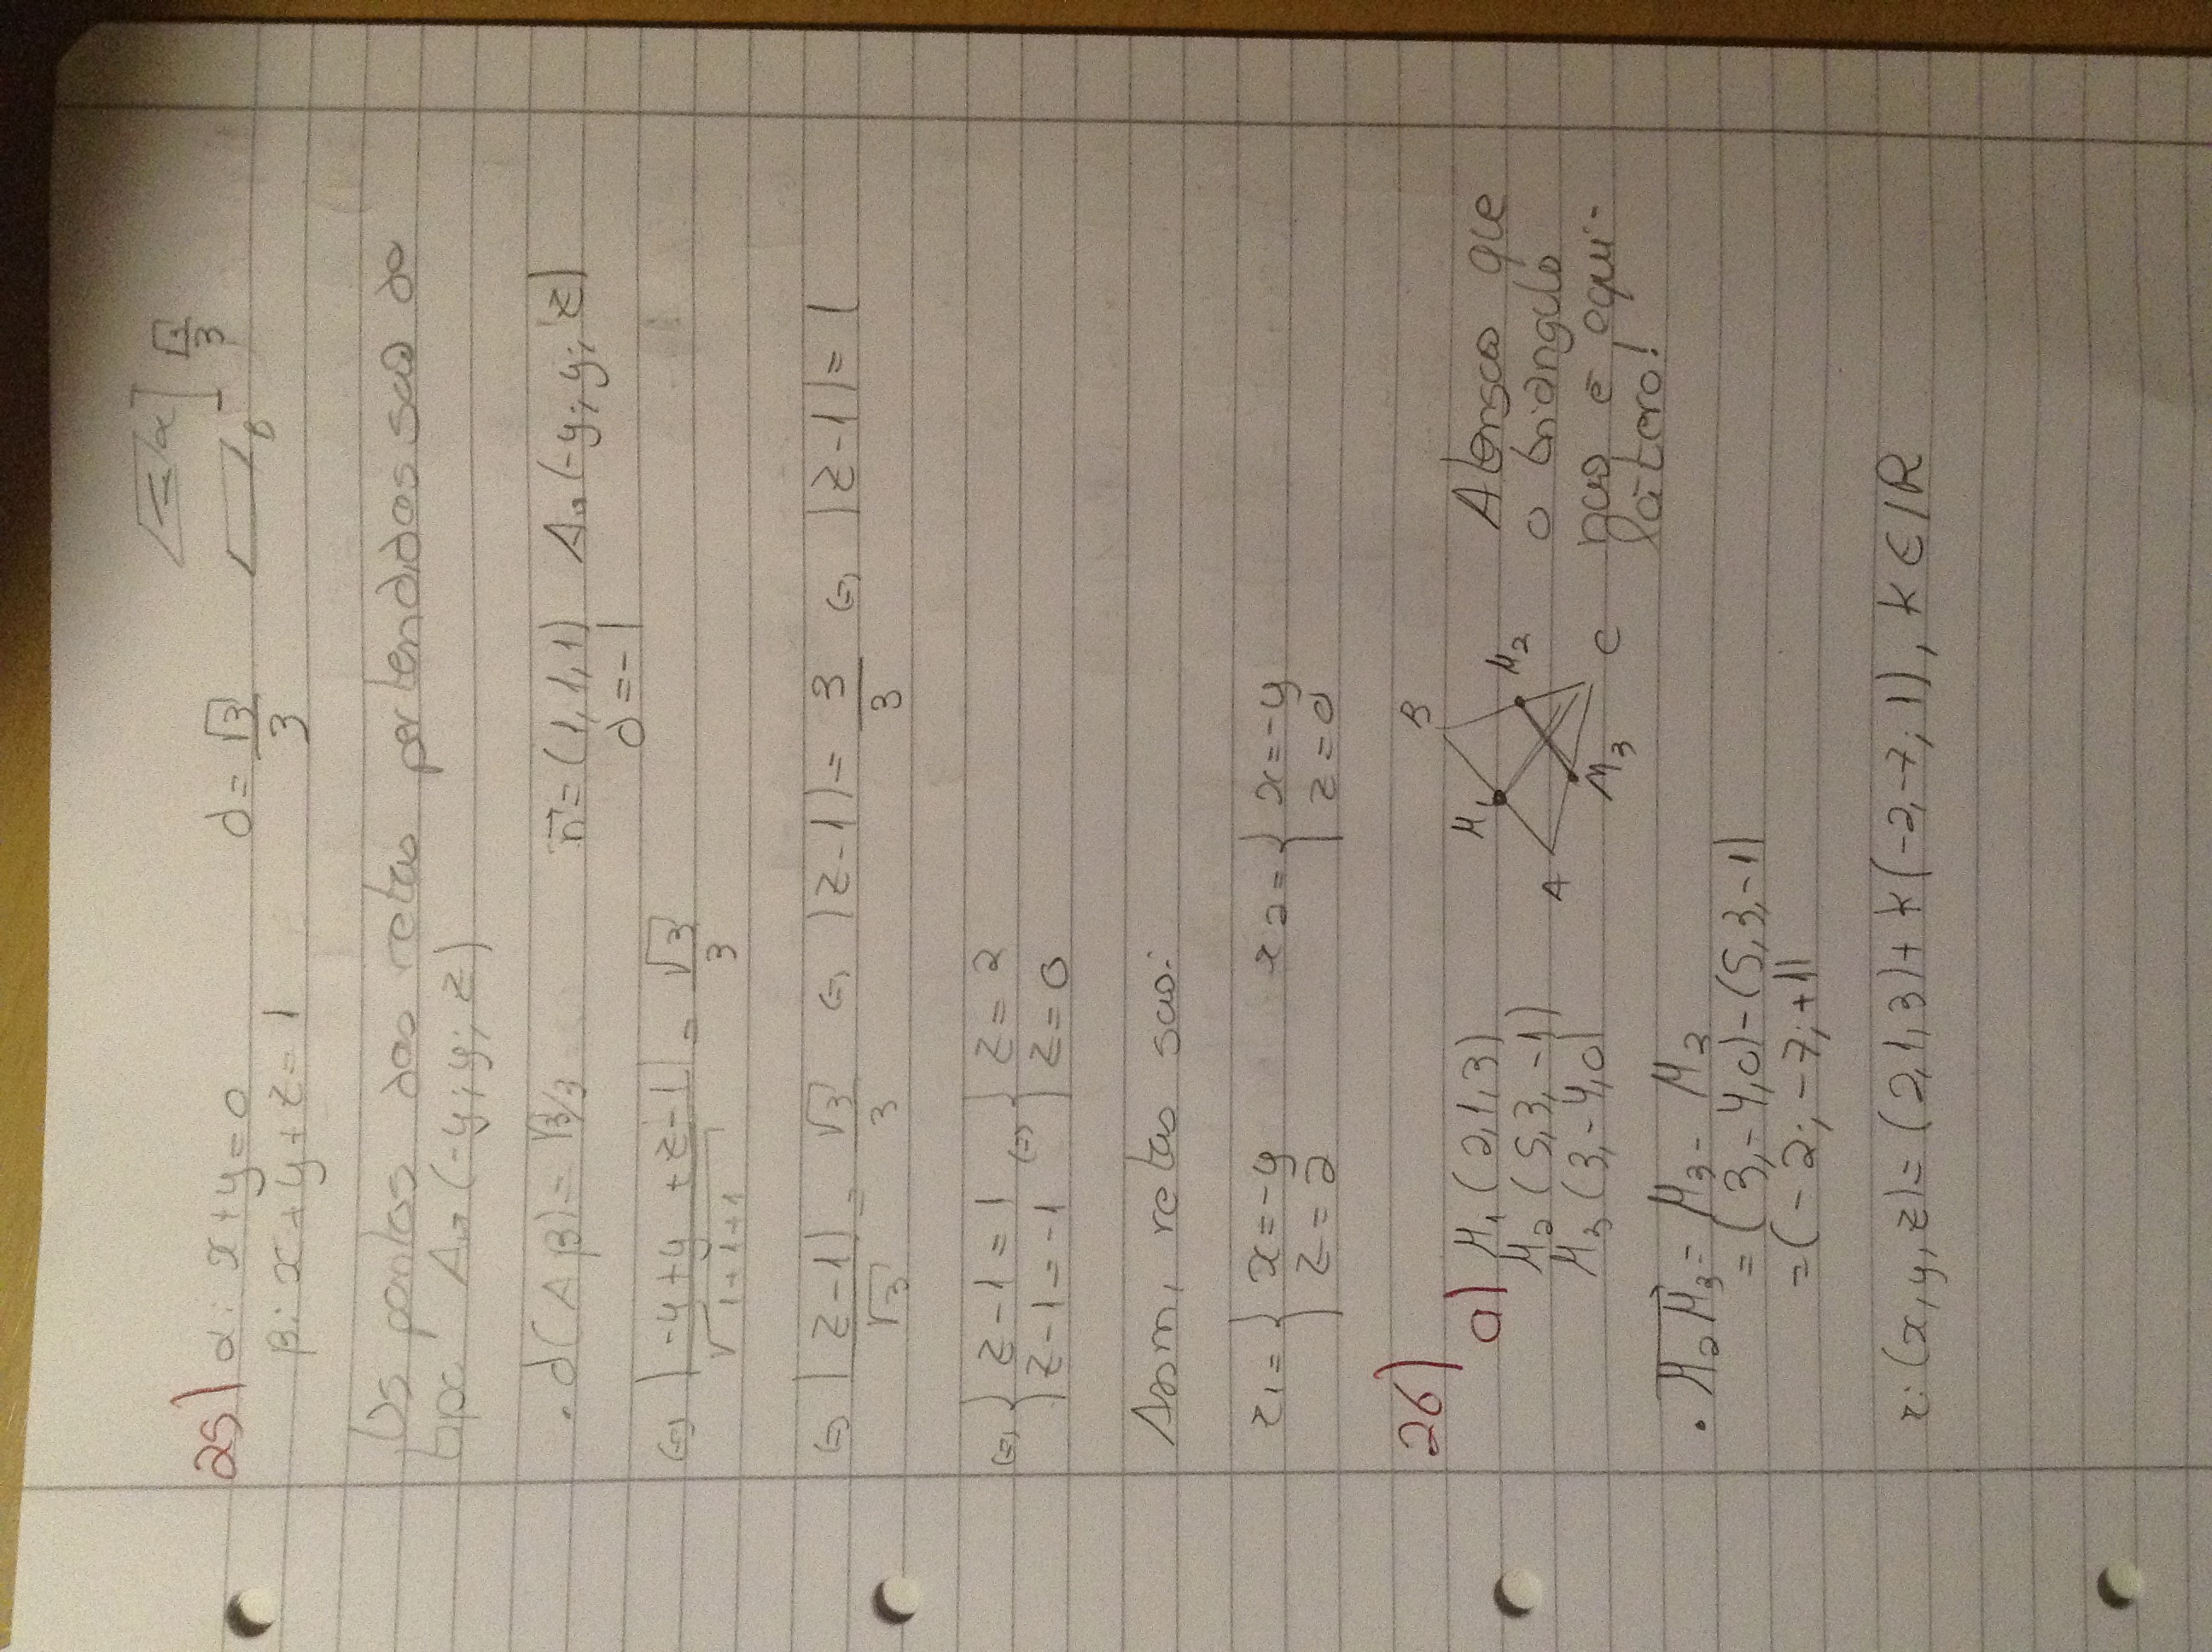 25) α: x+y=0 d=√3/3 α √3/3
β: x+y+z=1 β
Os pontos das retas pertendidas são do
tipo A→(-y; y; z)
. d(A β)= √3/3 n⃗=(1,1,1) A→(-y; y; z)
d=-1
⇔ |-y+y +z-1|/√1+1+1 = √3/3
⇔ |z-1|/√3 = √3/3 ⇔ |z-1|= 3/3 ⇔ |z-1|= 1
⇔ { z-1=1 ⇔ { z=2
z-1=-1 z=0
Assm, retas são:
r1= { x=-y r2= { x=-y
z=2 z=0
26)
a) M1 (2,1,3)
M2 (5,3,-1)
M3 (3,-4,0)
B
M1
M2
A
M3 C
Atensão que
o triangulo
não é equi-
látero!
. M2M3= M3 - M2
= (3,-4,0)-(5,3,-1)
=(-2; -7; +1)
r: (x,y,z)= (2,1,3)+ k(-2,-7,1), k ∈ IR